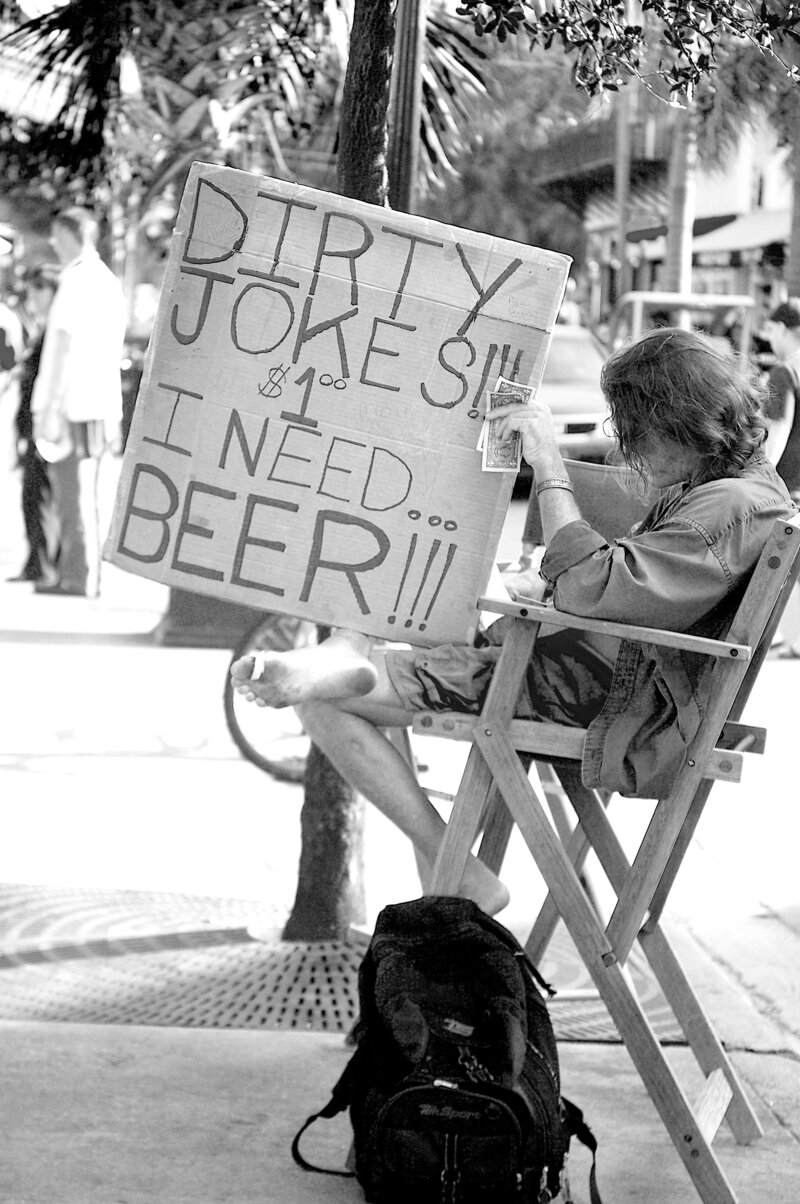 DIRTY
JOKES!!!
$1.00
I NEED...
BEER!!!